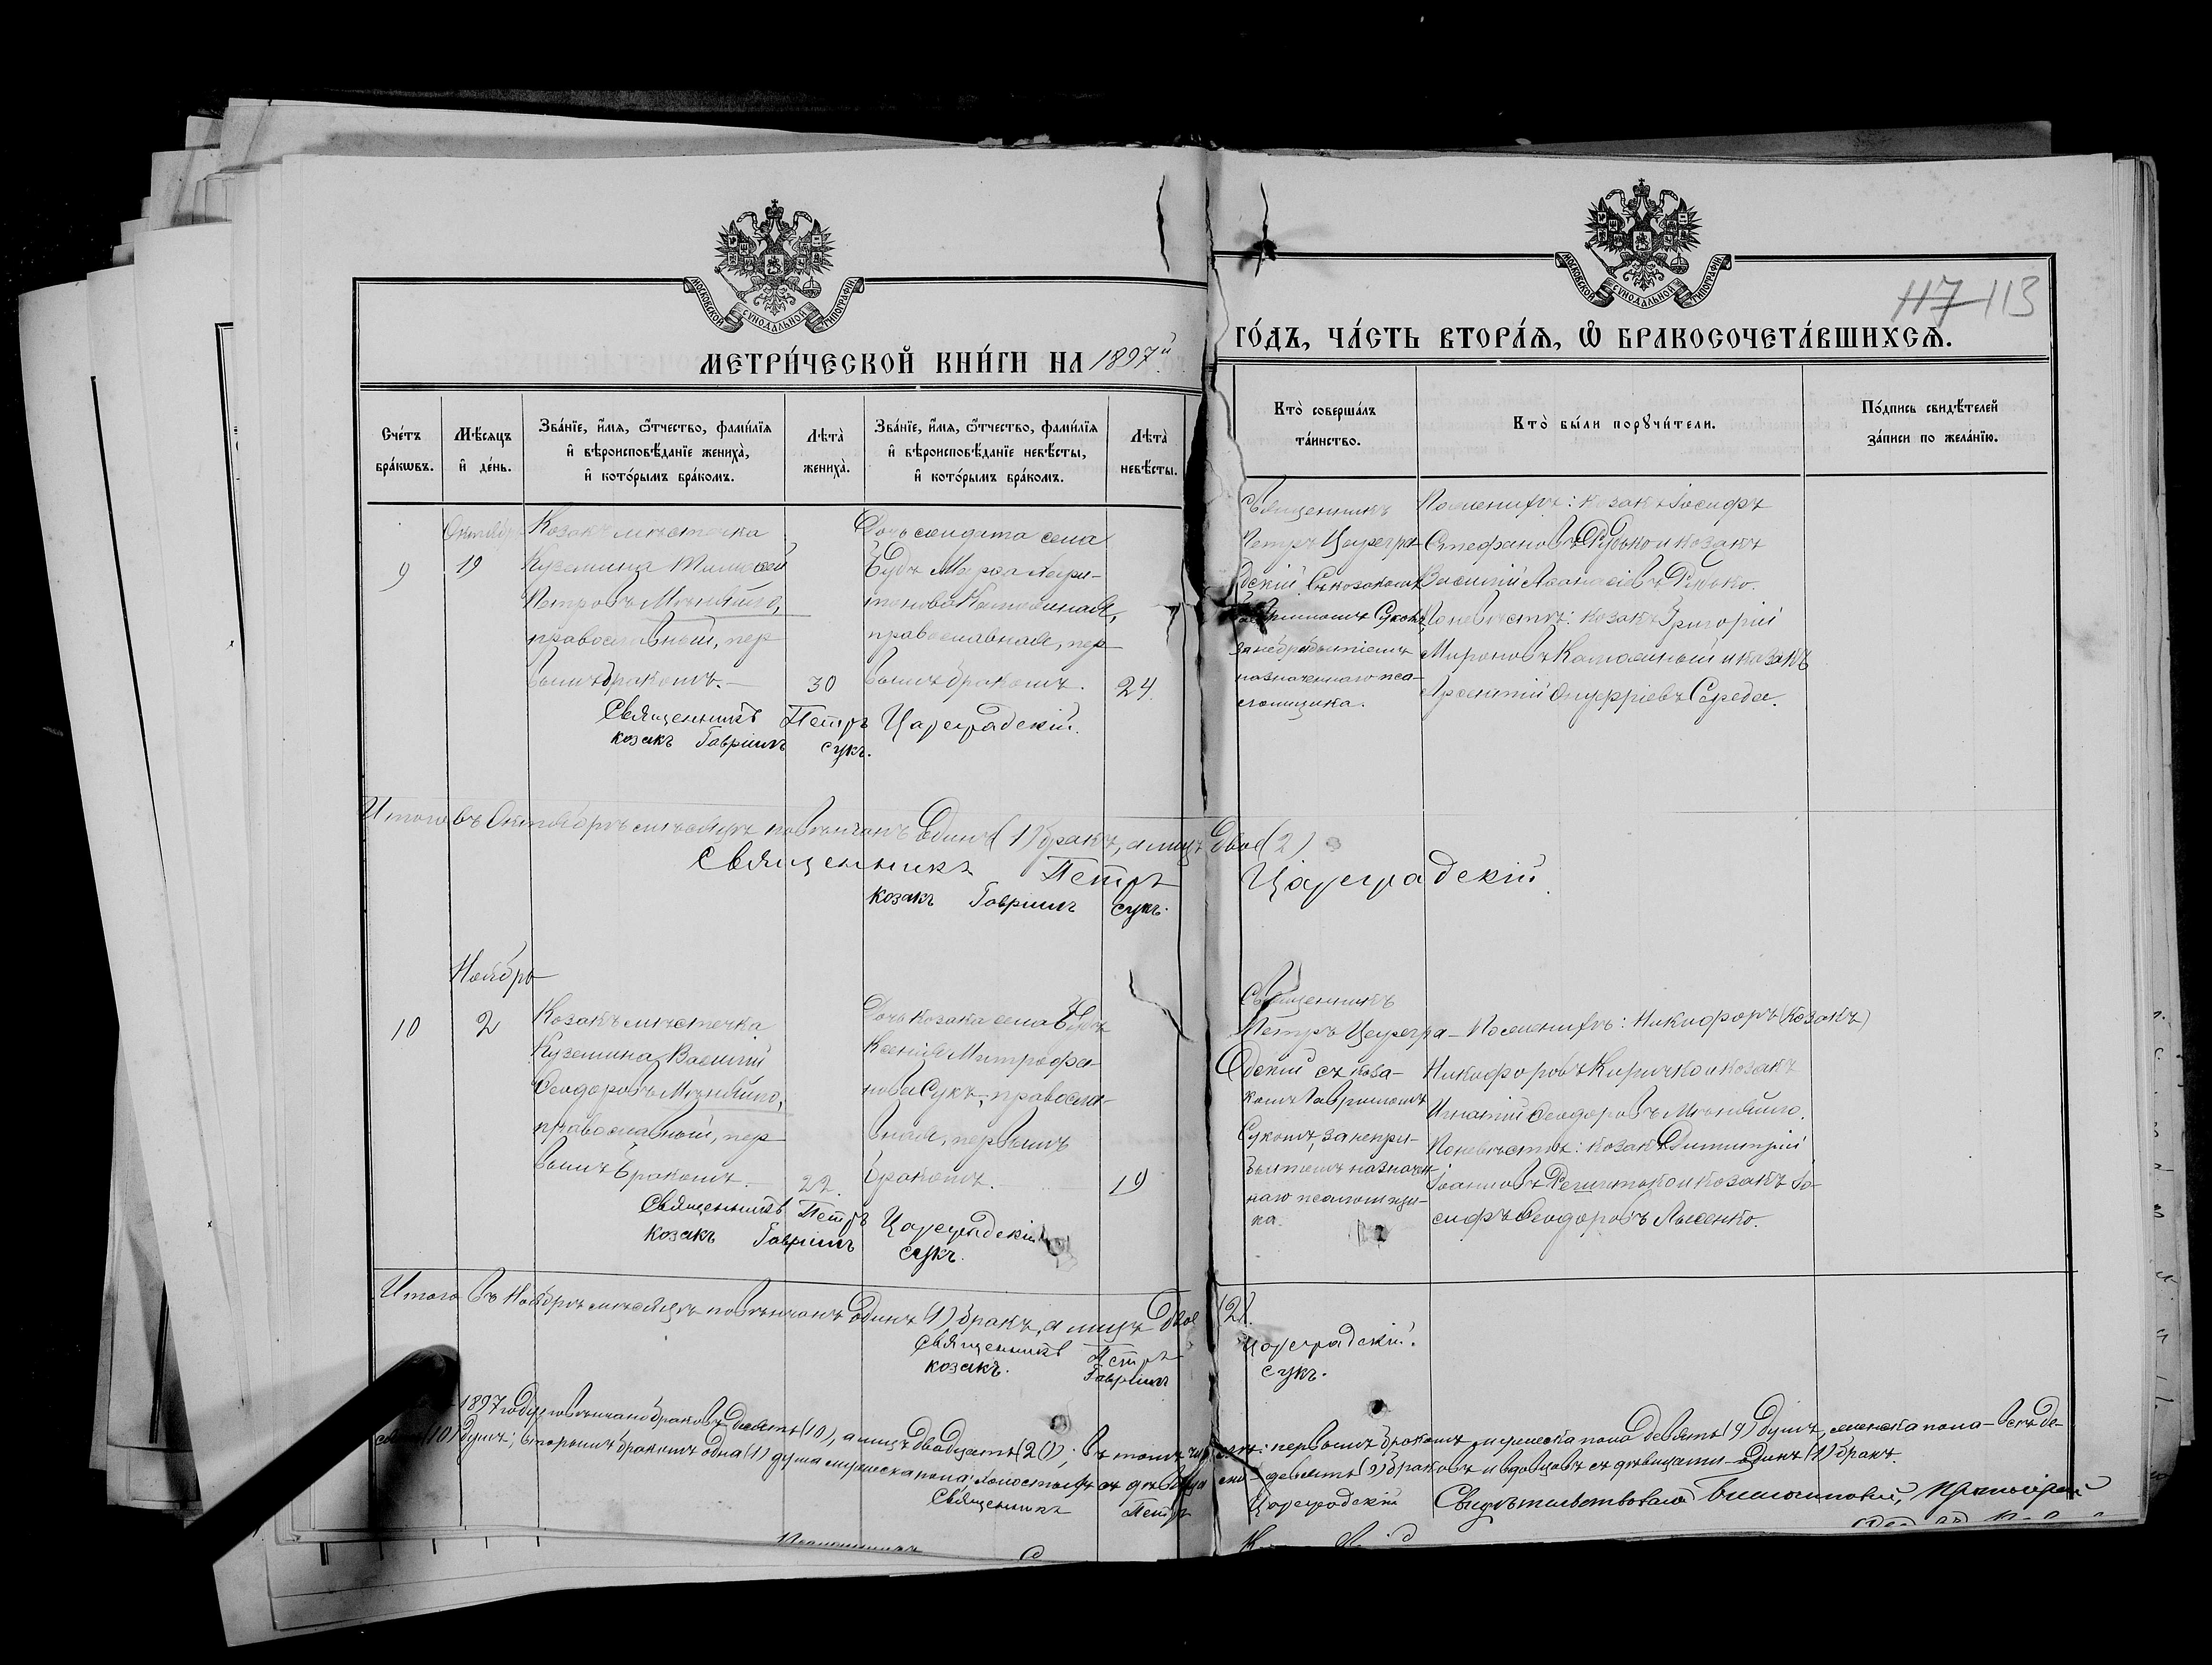 МОСКОВСКОЙ СѴНОДАЛЬНОЙ ТИПОГРАФІИ
МОСКОВСКОЙ СѴНОДАЛЬНОЙ ТИПОГРАФІИ
117 113
МЕТРИ́ЧЕСКОЙ КНИ́ГИ НА 1897й ГО́ДЪ, ЧА́СТЬ ВТОРА́Ѧ, Ѽ БРАКОСОЧЕТА́ВШИХСѦ.
Сче́тъ бра́кѡвъ.
Мѣ́сѧцъ и҆ де́нь.
Зва́нїе, и҆́мѧ, ѻ҆́тчество, фами́лїѧ и҆ вѣроисповѣ́данїе жениха̀, и҆ кото́рымъ бра́комъ.
Лѣ́та̀ жениха̀.
Зва́нїе, и҆́мѧ, ѻ҆́тчество, фами́лїѧ и҆ вѣроисповѣ́данїе невѣ́сты, и҆ кото́рымъ бра́комъ.
Лѣ́та̀ невѣ́сты.
Кто̀ соверша́лъ та́инство.
Кто̀ бы́ли порꙋчи́тели.
По́дпись свидѣ́телей за́писи по жела́нїю.
9
Октябрь
19
Козакъ мѣстечка
Куземина Тимофей
Петровъ Мѣняйло,
православный, пер
вымъ бракомъ.
30
Дочь солдата села
Марфа Хари-
тонова
православная, пер
вымъ бракомъ.
24.
Священникъ
Петръ Цареград-
дскій съ козакомъ
Гавріиломъ Сукомъ,
за небытіемъ
назначеннаго пса-
ломщика.
По женихѣ: козакъ Іосифъ
Стефановъ Рудько и козакъ
Василій Аѳанасіевъ
По невѣстѣ: козакъ Григорій
Мироновъ и козакъ
Арсентій Онуфріевъ Середа.
Священникъ Петръ Цареградскій.
козакъ Гавріилъ Сукъ.
Итого въ Октябрѣ мѣсяцѣ повѣнчанъ одинъ (1) бракъ, а лицъ двое (2)
Священникъ Петръ Цареградскій
козакъ Гавріилъ Сукъ.
Ноябрь
10
2
Козакъ мѣстечка
Куземина Василій
Ѳеодоровъ Мѣняйло,
православный, пер
вымъ бракомъ.
22.
Дочь козака села
Ксенія Митрофа-
нова Сукъ, правосла-
вная, первымъ
бракомъ.
19
Священникъ
Петръ Цареград-
дскій съ коза-
комъ Гавріиломъ
Сукомъ, за непри-
бытіемъ назначен-
наго псаломщи-
ка.
По женихѣ: Никифоръ (козакъ)
Никифоровъ Киричко и козакъ
Игнатій Ѳеодоровъ Мѣняйло.
По невѣстѣ: козакъ Димитрій
Іоанновъ Решитько и козакъ Іо-
сифъ Ѳеодоровъ Лысенко.
Священникъ Петръ Цареградскій
козакъ Гавріилъ Сукъ.
Итого въ Ноябрѣ мѣсяцѣ повѣнчанъ одинъ (1) бракъ, а лицъ двое (2).
Священникъ Петръ Цареградскій.
козакъ. Гавріилъ Сукъ.
1897 году повѣнчано браковъ десять (10), а лицъ двадцать (20); въ томъ числѣ: первымъ бракомъ мужеска пола девять (9) душъ, женска пола – всѣ де-
сять (10) душъ; вторымъ бракомъ одна (1) душа мужеска пола; холостыхъ съ дѣвицами – девять (9) браковъ и вдовцовъ съ дѣвицами – одинъ (1) бракъ.
Священникъ Петръ Цареградскій
Свидѣтельствовалъ